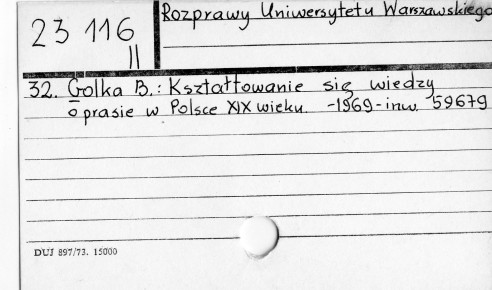 23 116
II
Rozprawy Uniwersytetu Warszawskiego
32. Golka B.: Kształtowanie się wiedzy
o prasie w Polsce XIX wieku. -1969- inw. 59679
DUJ 897/73. 15000